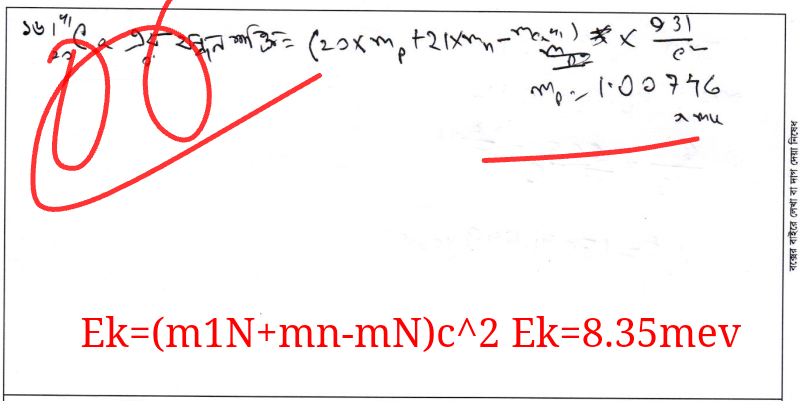 ১৬। ⁴¹₂₀Ca এর বন্ধন শক্তি = (20 x mₚ + 21 x mₙ - ) x 931/c²
mₚ = 1.00746
amu
Ek=(m1N+mn-mN)c^2 Ek=8.35mev
বক্সের বাইরে লেখা বা দাগ দেয়া নিষেধ